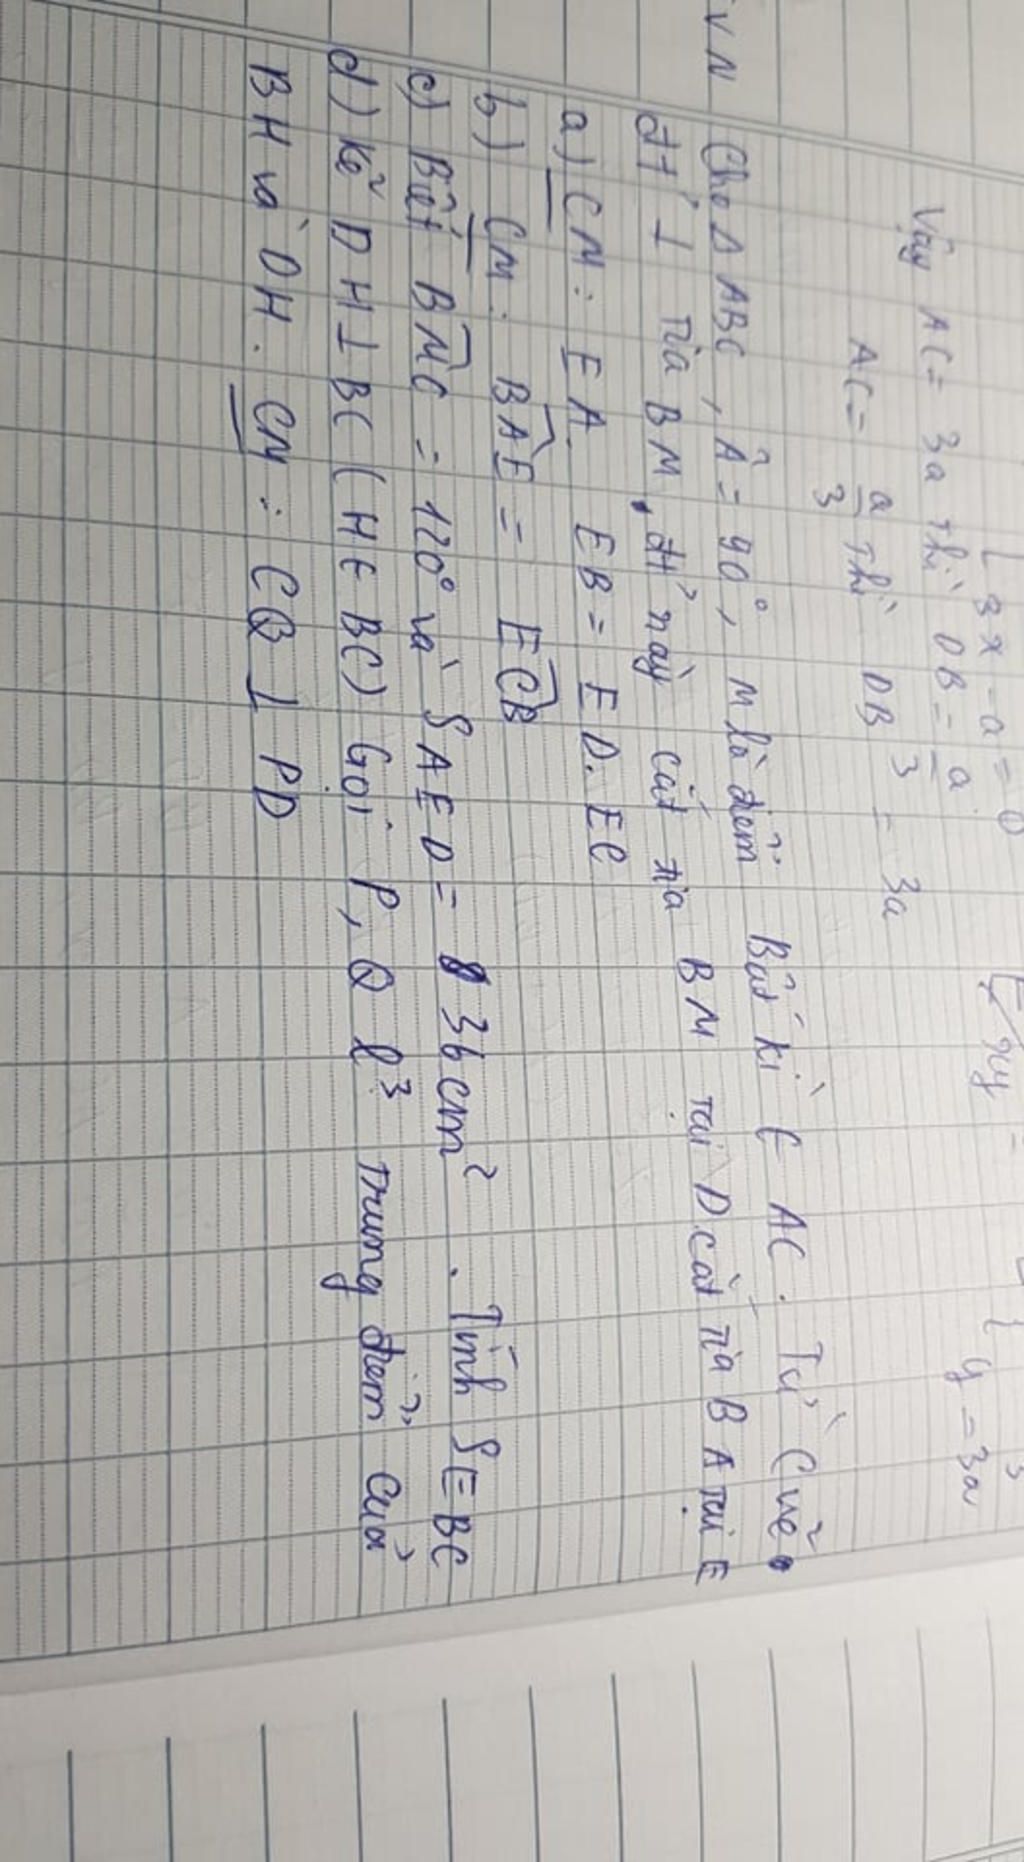 3x - a = 0
Vậy AC = 3a thì DB = a/3
AC = a/3 thì DB = 3a
xy =
y = 3a
VN
Cho Δ ABC, Â = 90°, M là điểm Bất kì ∈ AC. Từ C vẽ
đt' ⊥ tia BM, đt' này cắt tia BM tại D. cắt tia BA tại E
a) CM: EA. EB = ED. EC
b) CM: BAE = ECB
c) Biết BMC = 120° và SAED = 36cm². Tính SEBC
d) Kẻ DH ⊥ BC (H ∈ BC) Gọi P, Q l³ Trung điểm của
BH và DH. CM: CQ ⊥ PD